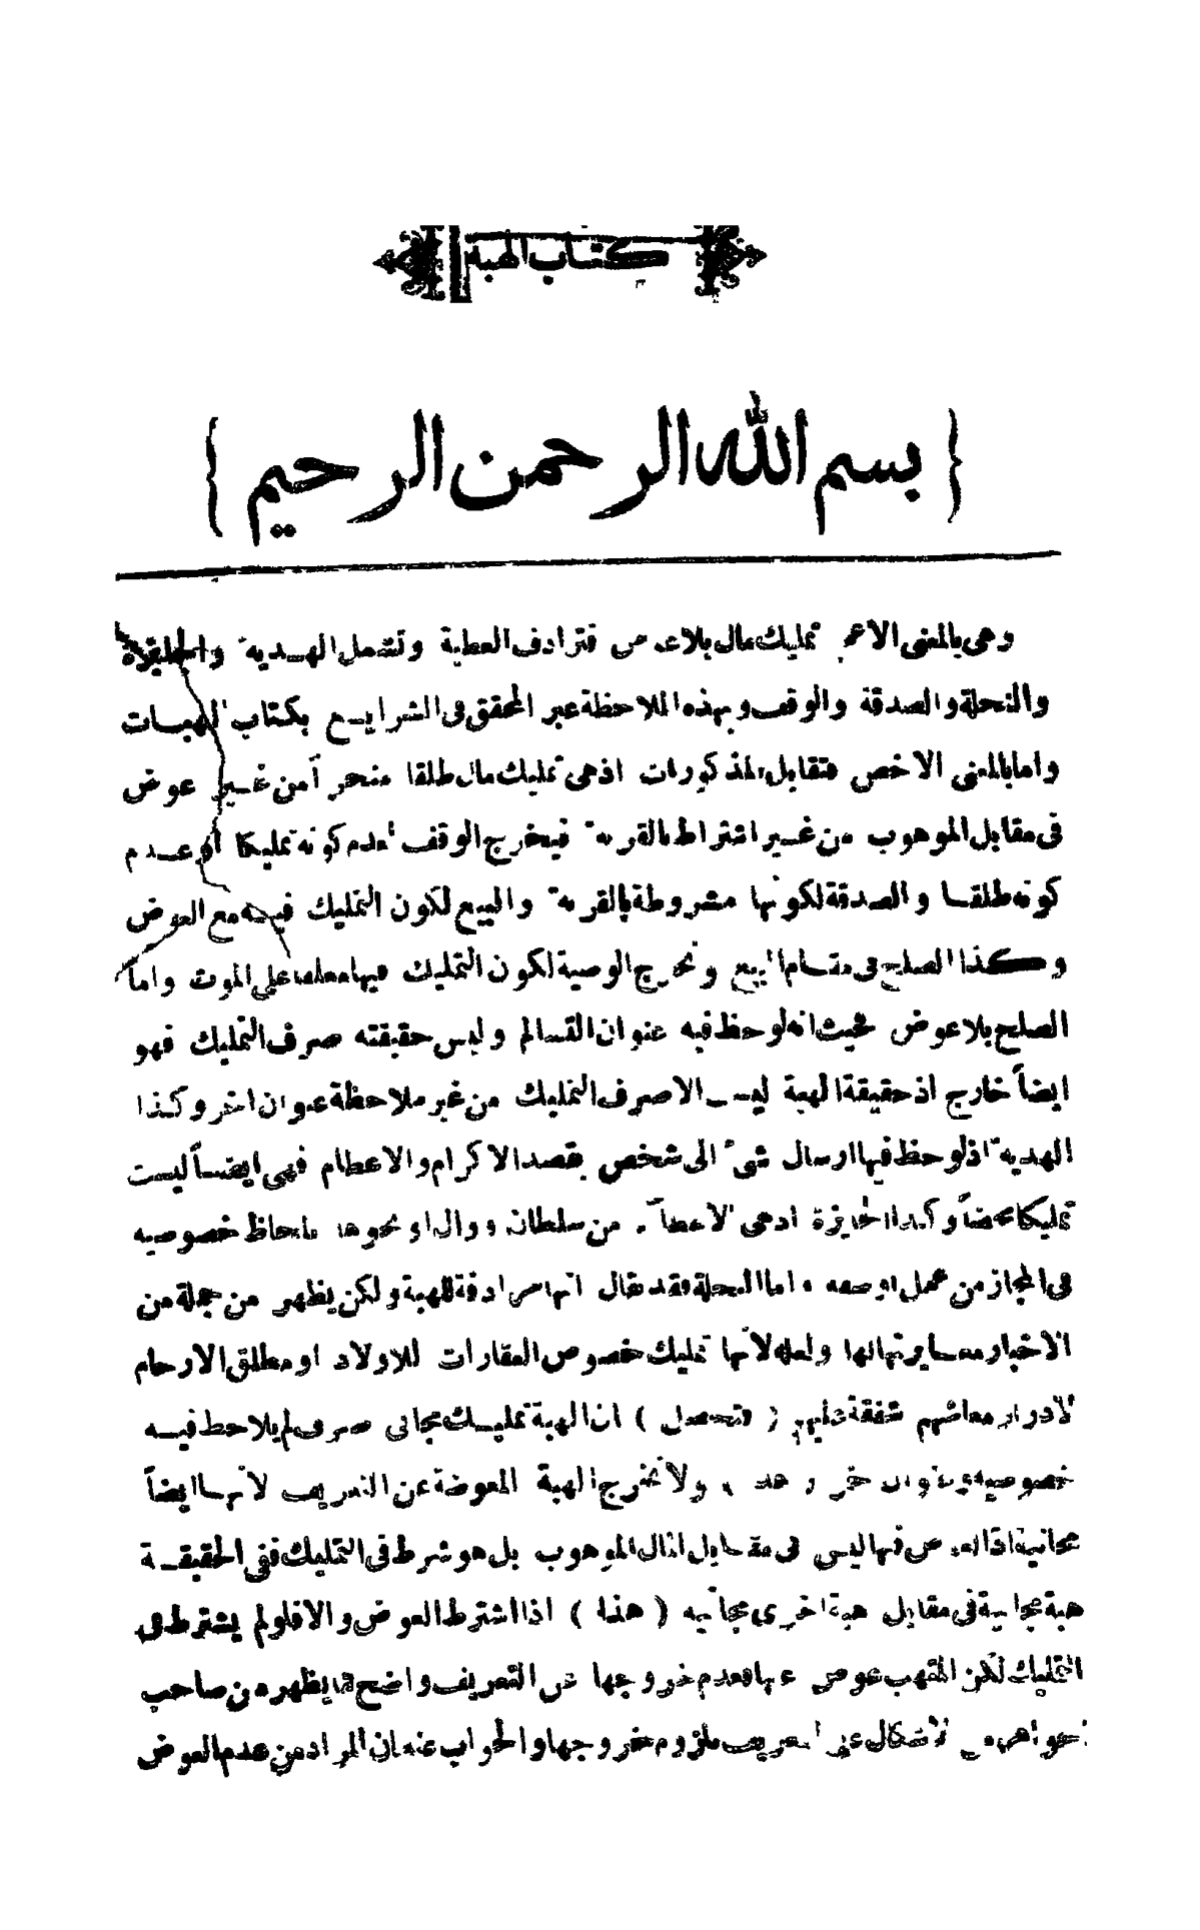 كتاب الهبة
{ بسم الله الرحمن الرحيم }
وهى بالمعنى الاعم تمليك مال بلا عوض فترادف العطية وتشمل الهـدية والجايزة
والنحلة والصدقة والوقف وبهذه الملاحظة عبر المحقق فى الشرايـع بكتاب الهبـات
واما بالمعنى الاخص فتقابل المذكورات اذ هى تمليك مال طلقا منجزاً من غـير عوض
فى مقابل الموهوب من غـير اشتراط بالقربة فيخرج الوقف لعدم كونه تمليكا او عـدم
كونه طلقـا والصدقة لكونها مشروطة بالقربة والبيع لكون التمليك فيـه مع العوض
وكذا الصلح فى مقـام البيع ونخرج الوصية لكون التمليك فيها معلقا على الموت واما
الصلح بلا عوض فحيث انه لوحظ فيه عنوان التسالم وليس حقيقته صرف التمليك فهو
ايضاً خارج اذ حقيقة الهبة ليسـ الا صرف التمليك من غير ملاحظة عنوان اخر وكذا
الهدية اذ لوحظ فيها ارسال شىء الى شخص بقصد الاكرام والاعظام فهى ايضـاً ليست
تمليكا محضاً وكذا الجايزة اذ هى الاعطاء من سلطان او وال او نحوها بلحاظ خصوصيه
فى المجاز من عمل او صفه واما النحلة فقد يقال انها مرادفة للهبة ولكن يظهر من جملة من
الاخبار مغـايرتها لها ولعله لانها تمليك خصوص العقارات للاولاد او مطلق الارحام
لادرار معاشهم شفقة عليهم ( فتحصل ) ان الهبة تمليـك مجانى صرف لم يلاحظ فيـه
خصوصيه وعنوان اخر ولا نخرج الهبة المعوضة عن التعريف لانهـا ايضاً
مجانية اذ العوض فيها ليس فى مقـابل المال الموهوب بل هو شرط فى التمليك ففى الحقيقـة
هبة مجانية فى مقابل هبة اخرى مجانيه ( هذا ) اذا اشترط العوض والا فلو لم يشترط فى
التمليك لكن المتهب عوض عنها فعدم خروجها عن التعريف واضح فما يظهر من صاحب
الجواهر من الاشكال على التعريف بلزوم خروجها والجواب عنه بان المراد من عدم العوض